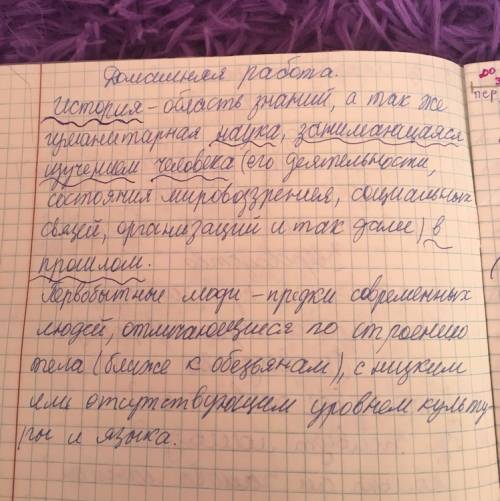 Домашняя работа.
История - область знаний, а так же
гуманитарная наука, занимающаяся
изучением человека (его деятельности,
состояния мировоззрения, социальных
связей, организаций и так далее) в
прошлом.
Первобытные люди - предки современных
людей, отличающиеся по строению
тела (ближе к обезьянам), с низким
или отсутствующим уровнем культу-
ры и языка.
пер